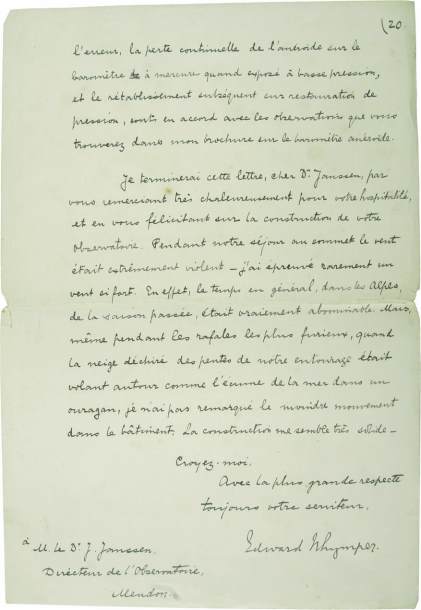 (20
l'erreur, la perte continuelle de l'anéroide sur le
baromètre à mercure quand exposé à basse pression,
et le rétablissement subséquent sur restauration de
pression, sont en accord avec les observations que vous
trouverez dans mon brochure sur le baromètre anéroide.
Je terminerai cette lettre, cher Dr. Janssen, par
vous remerciant très chaleureusement pour votre hospitalité,
et en vous félicitant sur la construction de votre
Observatoire. Pendant notre séjour au sommet le vent
était extrêmement violent – j'ai éprouvé rarement un
vent si fort. En effet, le temps en général, dans les Alpes,
de la saison passée, était vraiement abominable. Mais,
même pendant les rafales les plus furieux, quand
la neige déchiré des pentes de notre entourage était
volant autour comme l'écume de la mer dans un
ouragan, je n'ai pas remarqué le moindre mouvement
dans le bâtiment. La construction me semble très solide –
Croyez-moi.
Avec la plus grande respecte
toujours votre serviteur,
Edward Whymper.
à M. le Dr. J. Janssen.
Directeur de l'Observatoire,
Meudon.